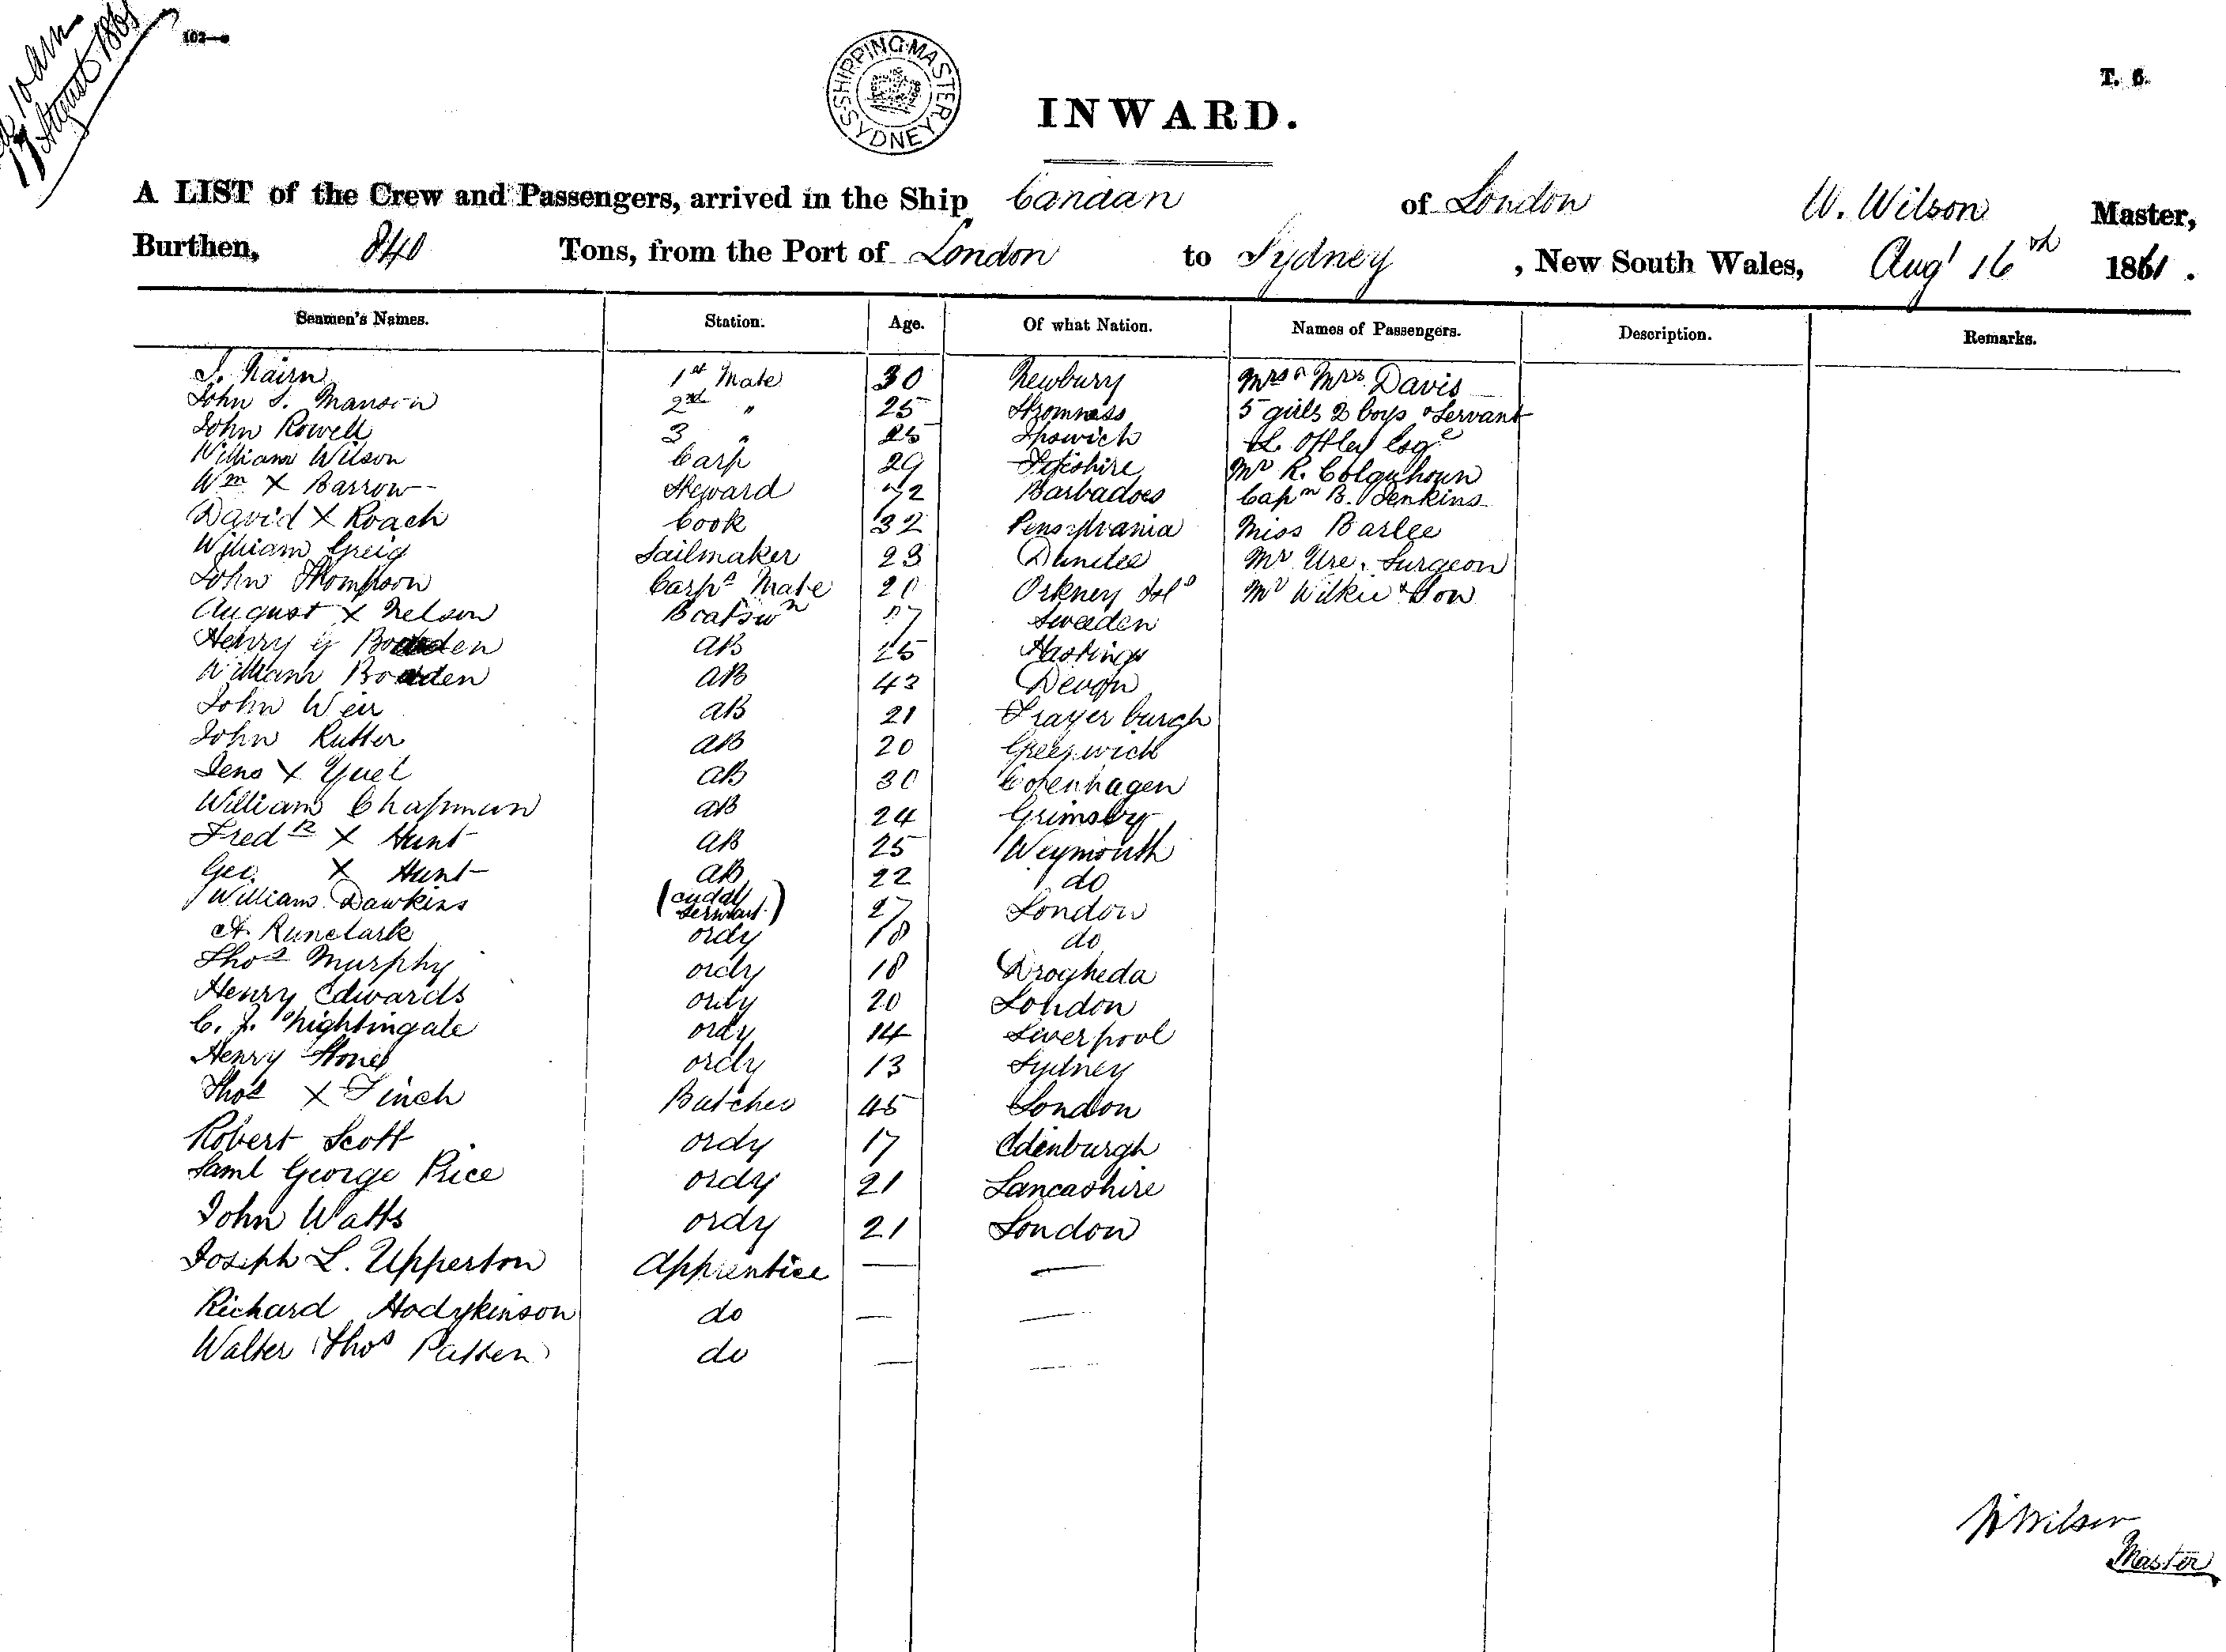 10 am
17 August 1861
102—
T. 6.
SHIPPING MASTER SYDNEY
INWARD.
A LIST of the Crew and Passengers, arrived in the Ship Canaan of London W. Wilson Master,
Burthen, 840 Tons, from the Port of London to Sydney, New South Wales, Augt 16th 1861.
Seamen's Names. Station. Age. Of what Nation. Names of Passengers. Description. Remarks.
J. Nairn 1st Mate 30 Newbury Mrs Davis
John S. Manson 2nd " 25 Stromness 5 girls 2 boys & Servant
John Rowell 3 " 25 Ipswich Offley Esqe
William Wilson Carp 29 Fifeshire Mr R. Colquhoun
Wm X Barrow Steward Barbadoes Capn B. Jenkins
David X Roach Cook 32 Pensylvania Miss Barlee
William Greig Sailmaker 23 Dundee Mr Ure. Surgeon
John Thompson Carps Mate 20 Orkney Isls Mr Wilkie & Son
August X Nelson Boatswn Sweeden
Henry Bowden AB 25 Hastings
William Bowden AB 43 Devon
John Weir AB 21 Frayerburgh
John Rutter AB 20 Greenwich
Jens X Yuel AB 30 Copenhagen
William Chapman AB 24 Grimsby
Fredk X Hunt AB 25 Weymouth
Geo. X Hunt AB 22 do
William Dawkins (cuddy servant.) 27 London
A. Runclark ordy 18 do
Thos Murphy ordy 18 Drogheda
Henry Edwards ordy 20 London
C. J. Nightingale ordy 14 Liverpool
Henry Stone ordy 13 Sydney
Thos X Finch Butcher 45 London
Robert Scott ordy 17 Edinburgh
Saml George Price ordy 21 Lancashire
John Watts ordy 21 London
Joseph L. Upperton Apprentice — —
Richard Hodgkinson do — —
Walter Thos Patten do — —
W Wilson
Master